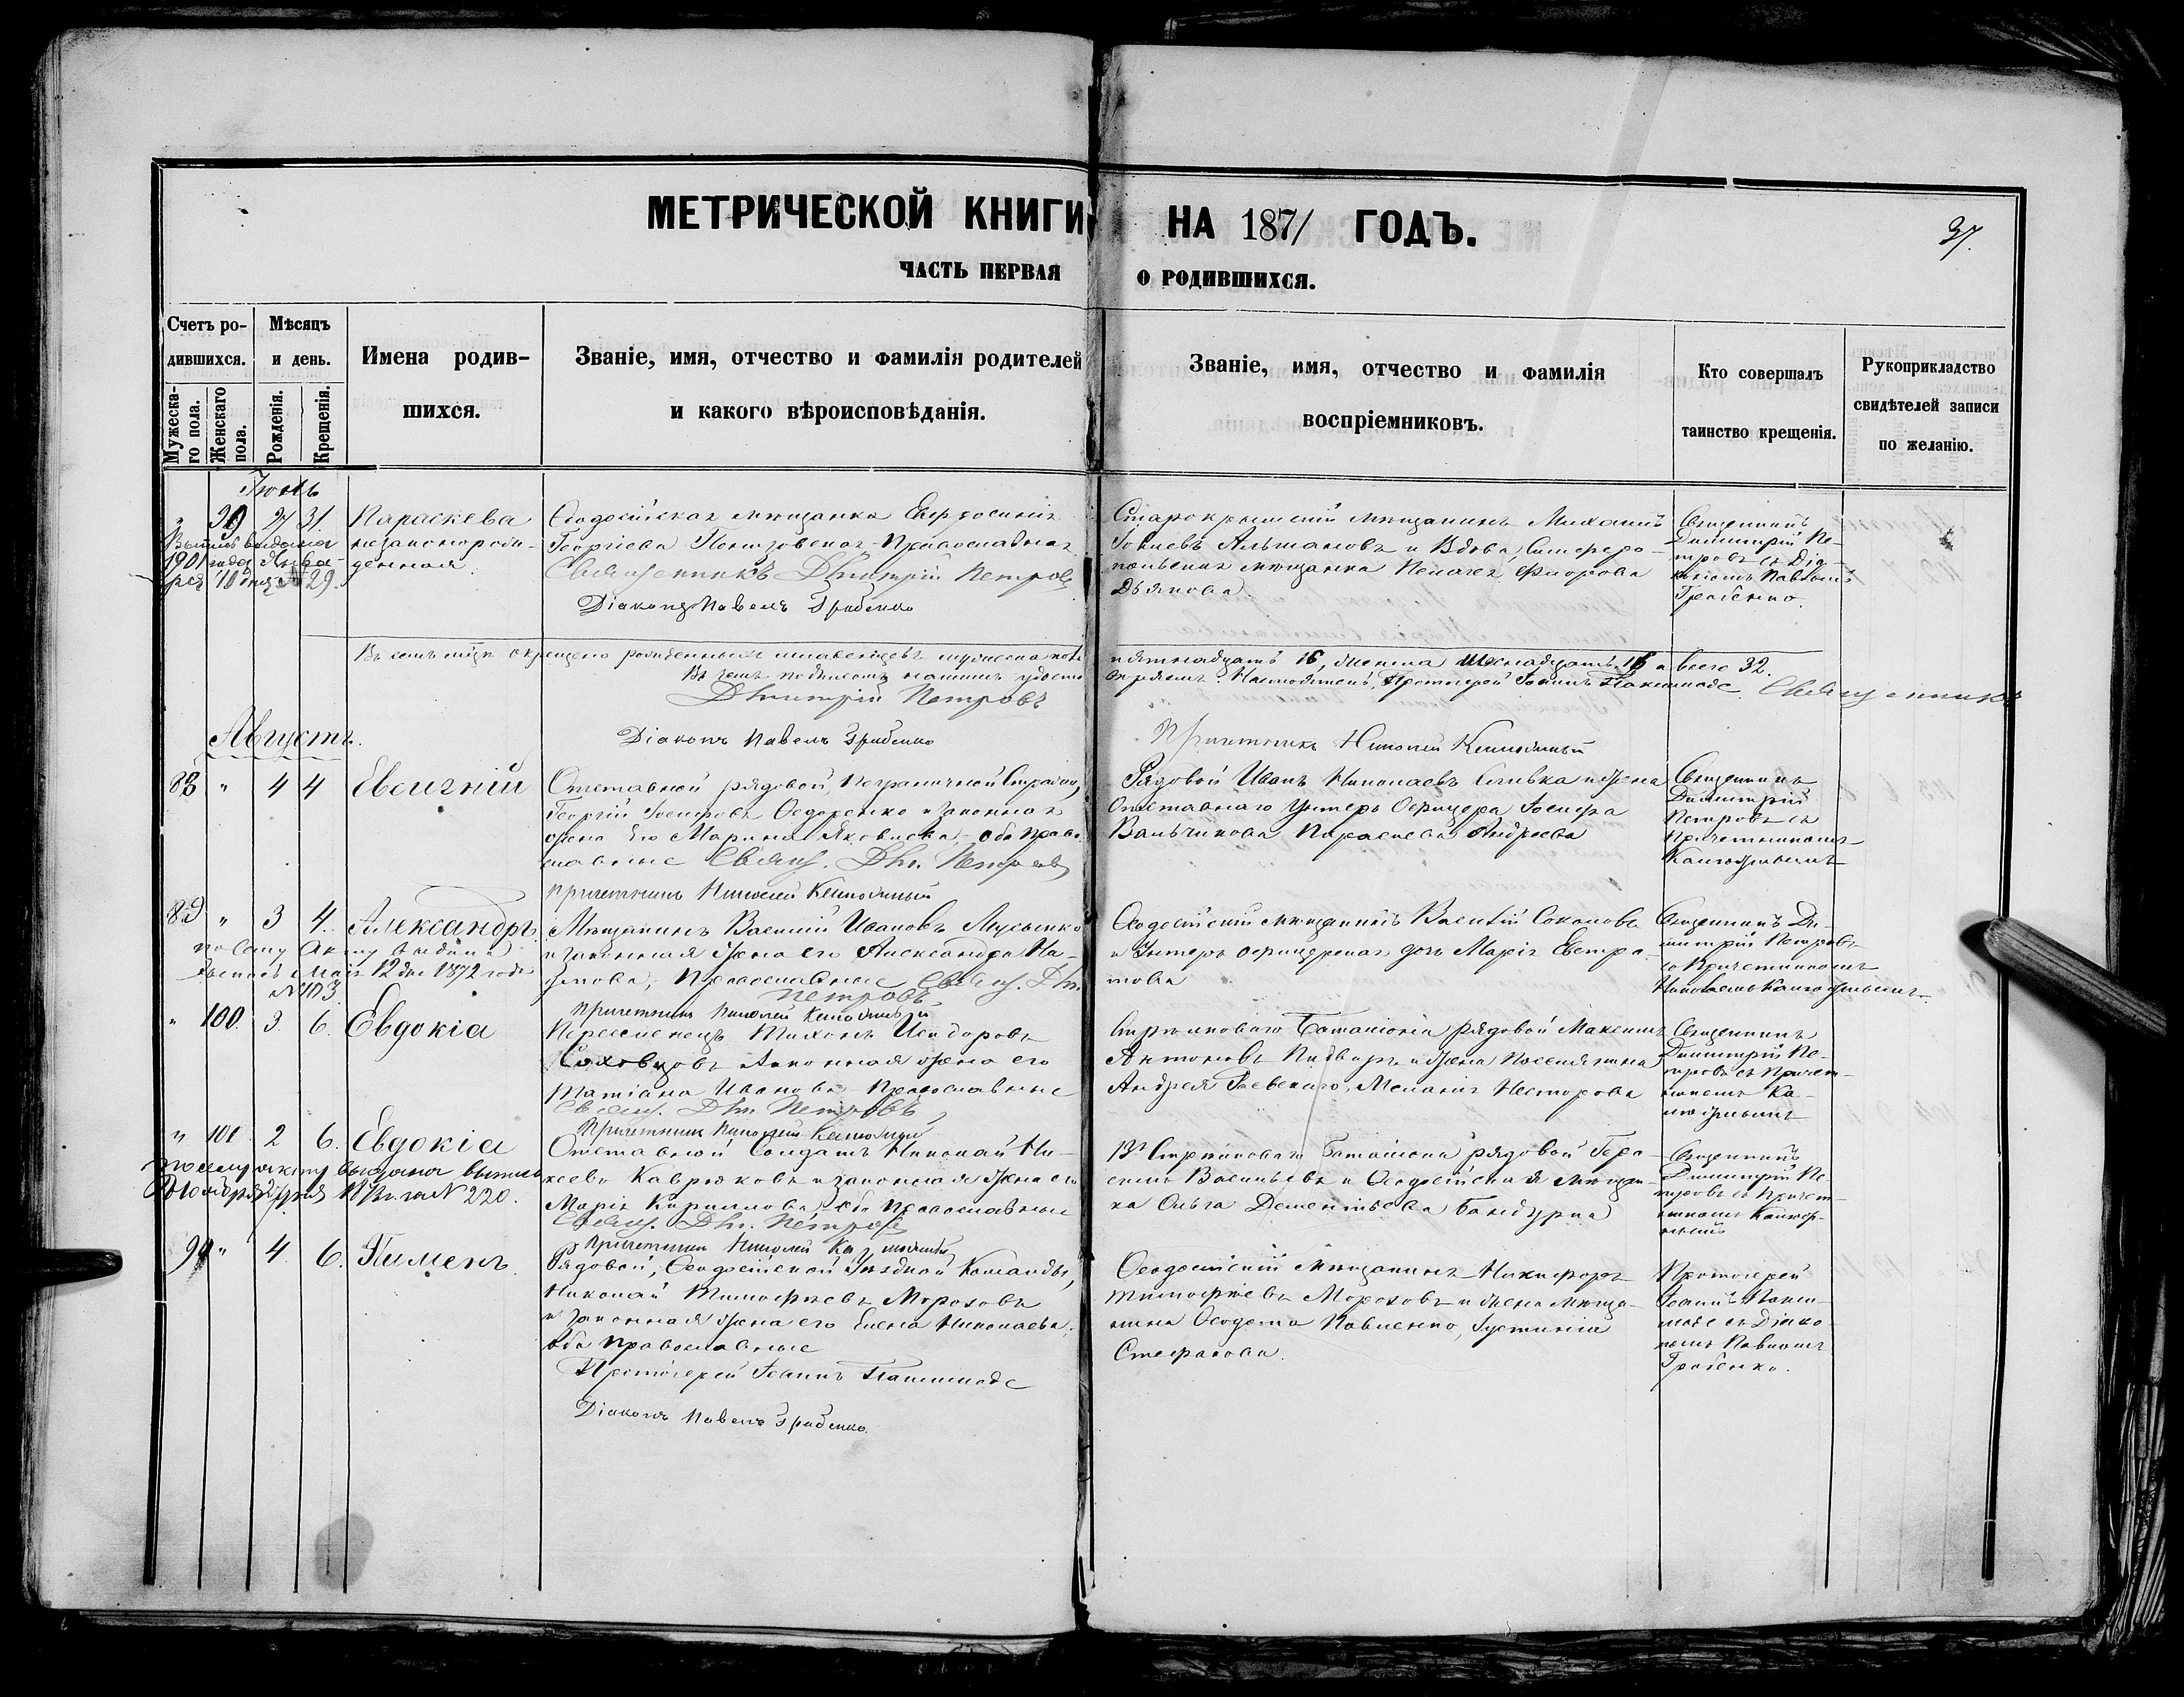 МЕТРИЧЕСКОЙ КНИГИ НА 1871 ГОДЪ.
37.
ЧАСТЬ ПЕРВАЯ О РОДИВШИХСЯ.
Счетъ ро-
дившихся.
Мужеска-
го пола.
Женскаго
пола.
Мѣсяцъ
и день.
Рожденія.
Крещенія.
Имена родив-
шихся.
Званіе, имя, отчество и фамилія родителей
и какого вѣроисповѣданія.
Званіе, имя, отчество и фамилія
воспріемниковъ.
Кто совершалъ
таинство крещенія.
Рукоприкладство
свидѣтелей записи
по желанію.
Іюль
" 27 31. Параскева
незаконорож-
денная
1901 года Янва-
ря 10 дня № 29.
Ѳеодосійская мѣщанка Евфросинія
Георгіева Православная
Священникъ Дмитрій Петровъ
Діаконъ Павелъ Грабенко
Старокрымскій мѣщанинъ Михаилъ
и Вдова, Симферо-
польская мѣщанка Пелагея
Священникъ
Димитрій Пе-
тровъ съ Діа-
кономъ Павломъ
Грабенко.
крещено рожденныхъ младенцевъ мужеска пола
пятнадцать 16, женска шестнадцать 16 а всего 32.
Протоіерей Іоаннъ Священникъ
Дмитрій Петровъ
Діаконъ Павелъ Грабенко
Причетникъ Николай
Августъ.
" 4 4 Евсигній
Отставной рядовой, Пограничной Стражи,
Георгій Іосифовъ Ѳедоренко и законная
жена его Марина Яковлева, оба Право-
славные Свящ. Дм. Петровъ
Причетникъ Николай
Рядовой Иванъ Николаевъ Сливка и жена
Отставнаго Унтеръ Офицера Іосифа
Вальчикова Параскева Андреева
Священникъ
Димитрій
Петровъ съ
Причетникомъ
" 3 4. Александръ.
выдана
Мая 12 дня 1872 года
№ 103
Мѣщанинъ Василій Ивановъ
и законная жена его Александра На-
умова, Православные Свящ. Дм.
Петровъ
Причетникъ Николай
Ѳеодосійскій мѣщанинъ Василій Соколовъ
и Унтеръ офицерская дочь Марія Евстра-
това
Священникъ Ди-
митрій Петровъ
съ Причетникомъ
Николаемъ
" 100. 3. 6. Евдокія
Переселенецъ Тихонъ Исидоровъ
законная жена его
Татіана Иванова Православные
Свящ. Дм. Петровъ
Причетникъ Николай
Стрѣлковаго Баталіона рядовой Максимъ
Антоновъ и жена Поселянина
Андрея Меланія Несторова
Священникъ
Димитрій Пе-
тровъ съ Причет-
никомъ Ка-
" 101 2 6. Евдокія
По сему акту выдана выпись
№ 220.
Отставной Солдатъ Николай Ки-
реевъ и законная жена его
Марія Кириллова, оба Православные
Свящ. Дм. Петровъ
Причетникъ Николай
13го Стрѣлковаго Баталіона рядовой Гера-
симъ Васильевъ и Ѳеодосійская мѣщан-
ка Ольга Дементьева Бандурка
Священникъ
Димитрій Пе-
тровъ съ Причет-
никомъ
" 4. 6. Пименъ.
Рядовой, Ѳеодосійской Уѣздной Команды,
Николай Тимофѣевъ Морозовъ
и законная жена его Елена Николаева.
оба Православные
Протоіерей Іоаннъ
Діаконъ Павелъ Грабенко.
Ѳеодосійскій мѣщанинъ Никифоръ
Тимофѣевъ Морозовъ и жена мѣща-
нина Ѳеодота Павленко, Іустинія
Стефанова.
Протоіерей
Іоаннъ
съ Діако-
номъ Павломъ
Грабенко.